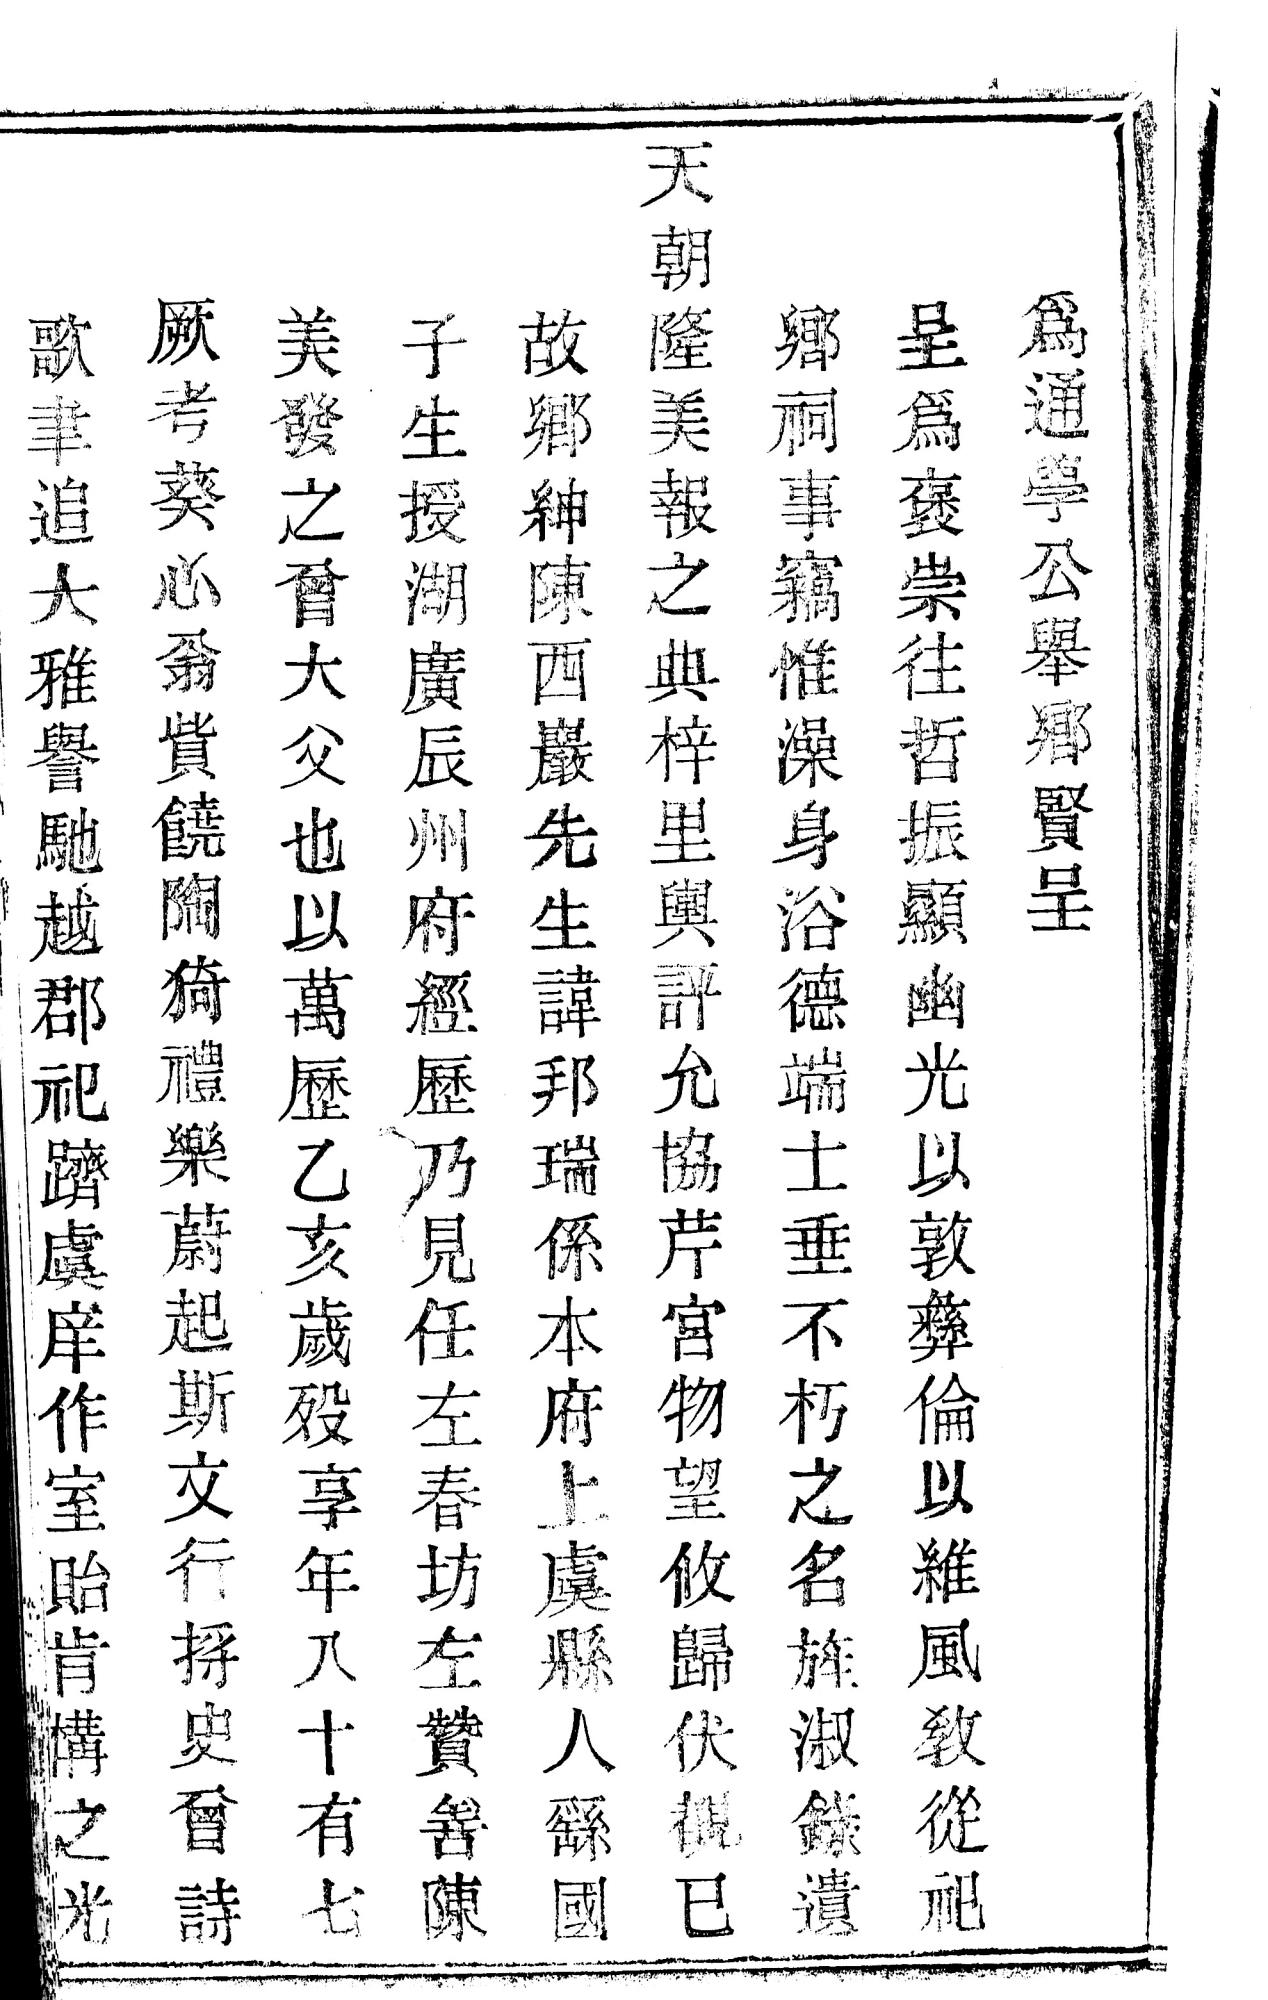 爲通學公舉鄉賢呈
呈爲褒崇往哲振顯幽光以敦彝倫以維風敎從祀
鄉祠事竊惟澡身浴德端士垂不朽之名旌淑錄遺
天朝隆美報之典梓里輿評允協芹宮物望攸歸伏覩已
故鄉紳陳西巖先生諱邦瑞係本府上虞縣人繇國
子生授湖廣辰州府經歷乃見任左春坊左贊善陳
美發之曾大父也以萬歷乙亥歲歿享年八十有七
厥考葵心翁貲饒陶猗禮樂蔚起斯文行捋史曾詩
歌聿追大雅譽馳越郡祀躋虞庠作室貽肯構之光